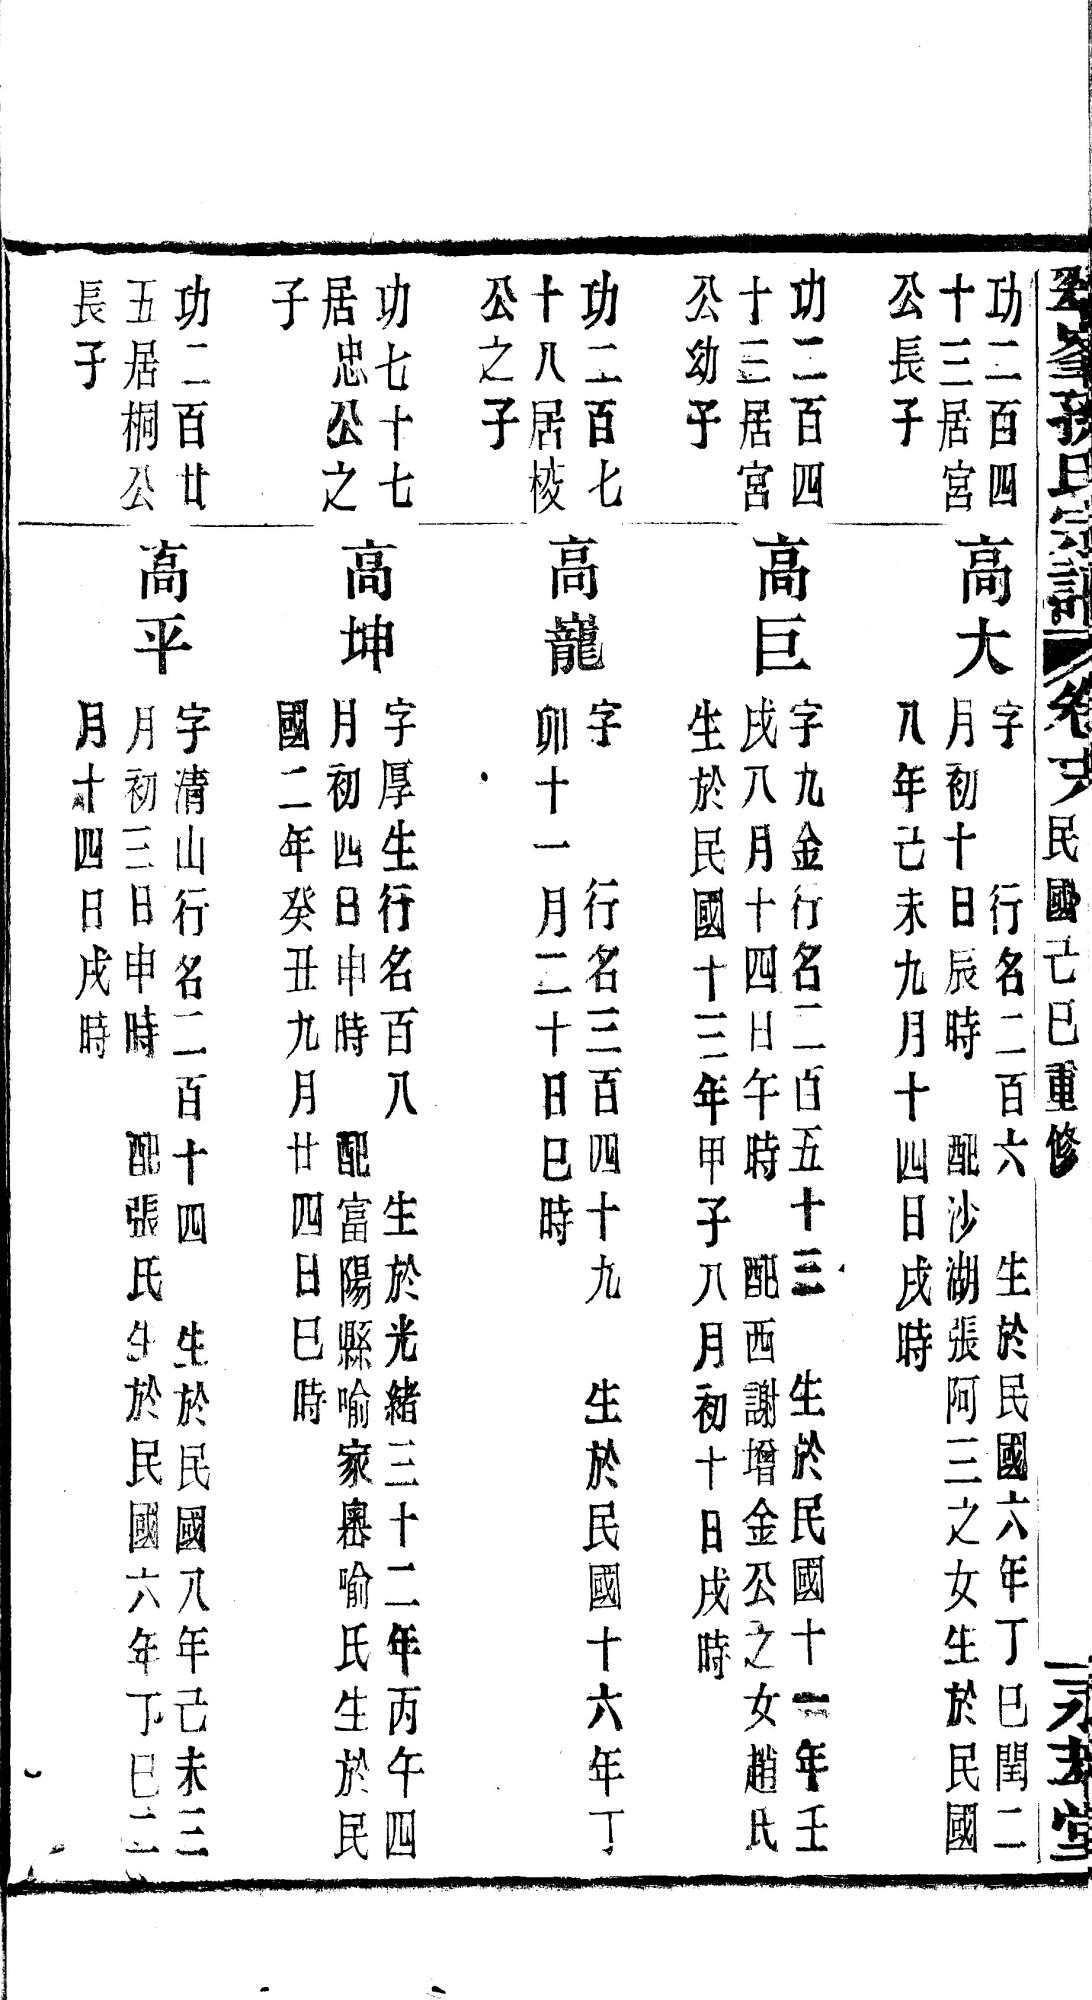 孫氏宗譜 卷 民國己巳重修 堂
功二百四
十三居宮
公長子
高大
字 行名二百六 生於民國六年丁巳閏二
月初十日辰時 配沙湖張阿三之女生於民國
八年己未九月十四日戌時
功二百四
十三居宮
公幼子
高巨
字九金行名二百五十三 生於民國十一年壬
戌八月十四日午時 配西謝增金公之女趙氏
生於民國十三年甲子八月初十日戌時
功二百七
十八居棱
公之子
高龍
字 行名三百四十九 生於民國十六年丁
卯十一月二十日巳時
功七十七
居忠公之
子
高坤
字厚生行名百八 生於光緒三十二年丙午四
月初四日申時 配富陽縣喻家喻氏生於民
國二年癸丑九月廿四日巳時
功二百廿
五居桐公
長子
高平
字清山行名二百十四 生於民國八年己未三
月初三日申時 配張氏生於民國六年丁巳二
月十四日戌時